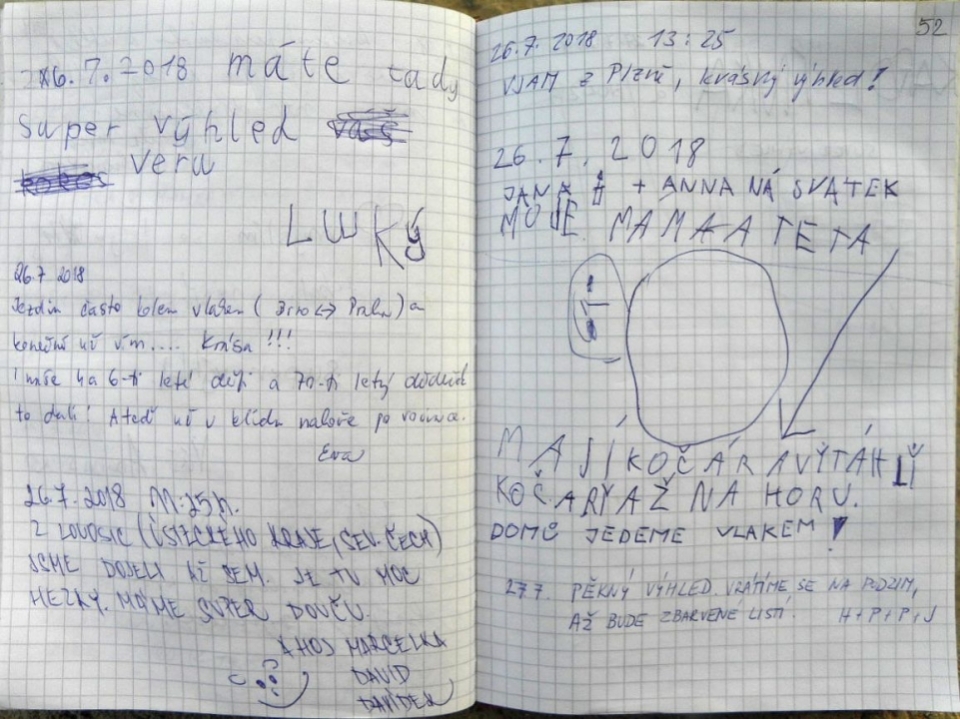 26.7.2018 máte tady
super výhled
veru
LWKÝ
26.7 2018
Jezdím často kolem vlakem (Brno <-> Praha) a
konečně už vím.... Krása !!!
I naše 4 a 6-ti leté děti a 70-ti letý dědeček
to dali! A teď už v klidu nahoře po rovince.
Eva
26.7.2018 11:25h.
Z LOVOSIC (ÚSTECKÉHO KRAJE, SEV. ČECH)
JSME DOJELI AŽ SEM. JE TU MOC
HEZKY. MÁME SUPER DOVČU.
AHOJ MARCELKA
DAVID
DAVÍDEK
52
26.7. 2018 13:25
z Plzně, krásný výhled!
26.7.2018
JANA + ANNA NÁ SVATEK
MOJE MAMA A TETA
MAJÍ KOČÁR A VÝTÁHLÍ
KOČARY AŽ NA HORU.
DOMŮ JEDEME VLAKEM!
27.7. PĚKNÝ VÝHLED. VRÁTÍME SE NA PODZIM,
AŽ BUDE ZBARVENÉ LISTÍ. H+P+P+J